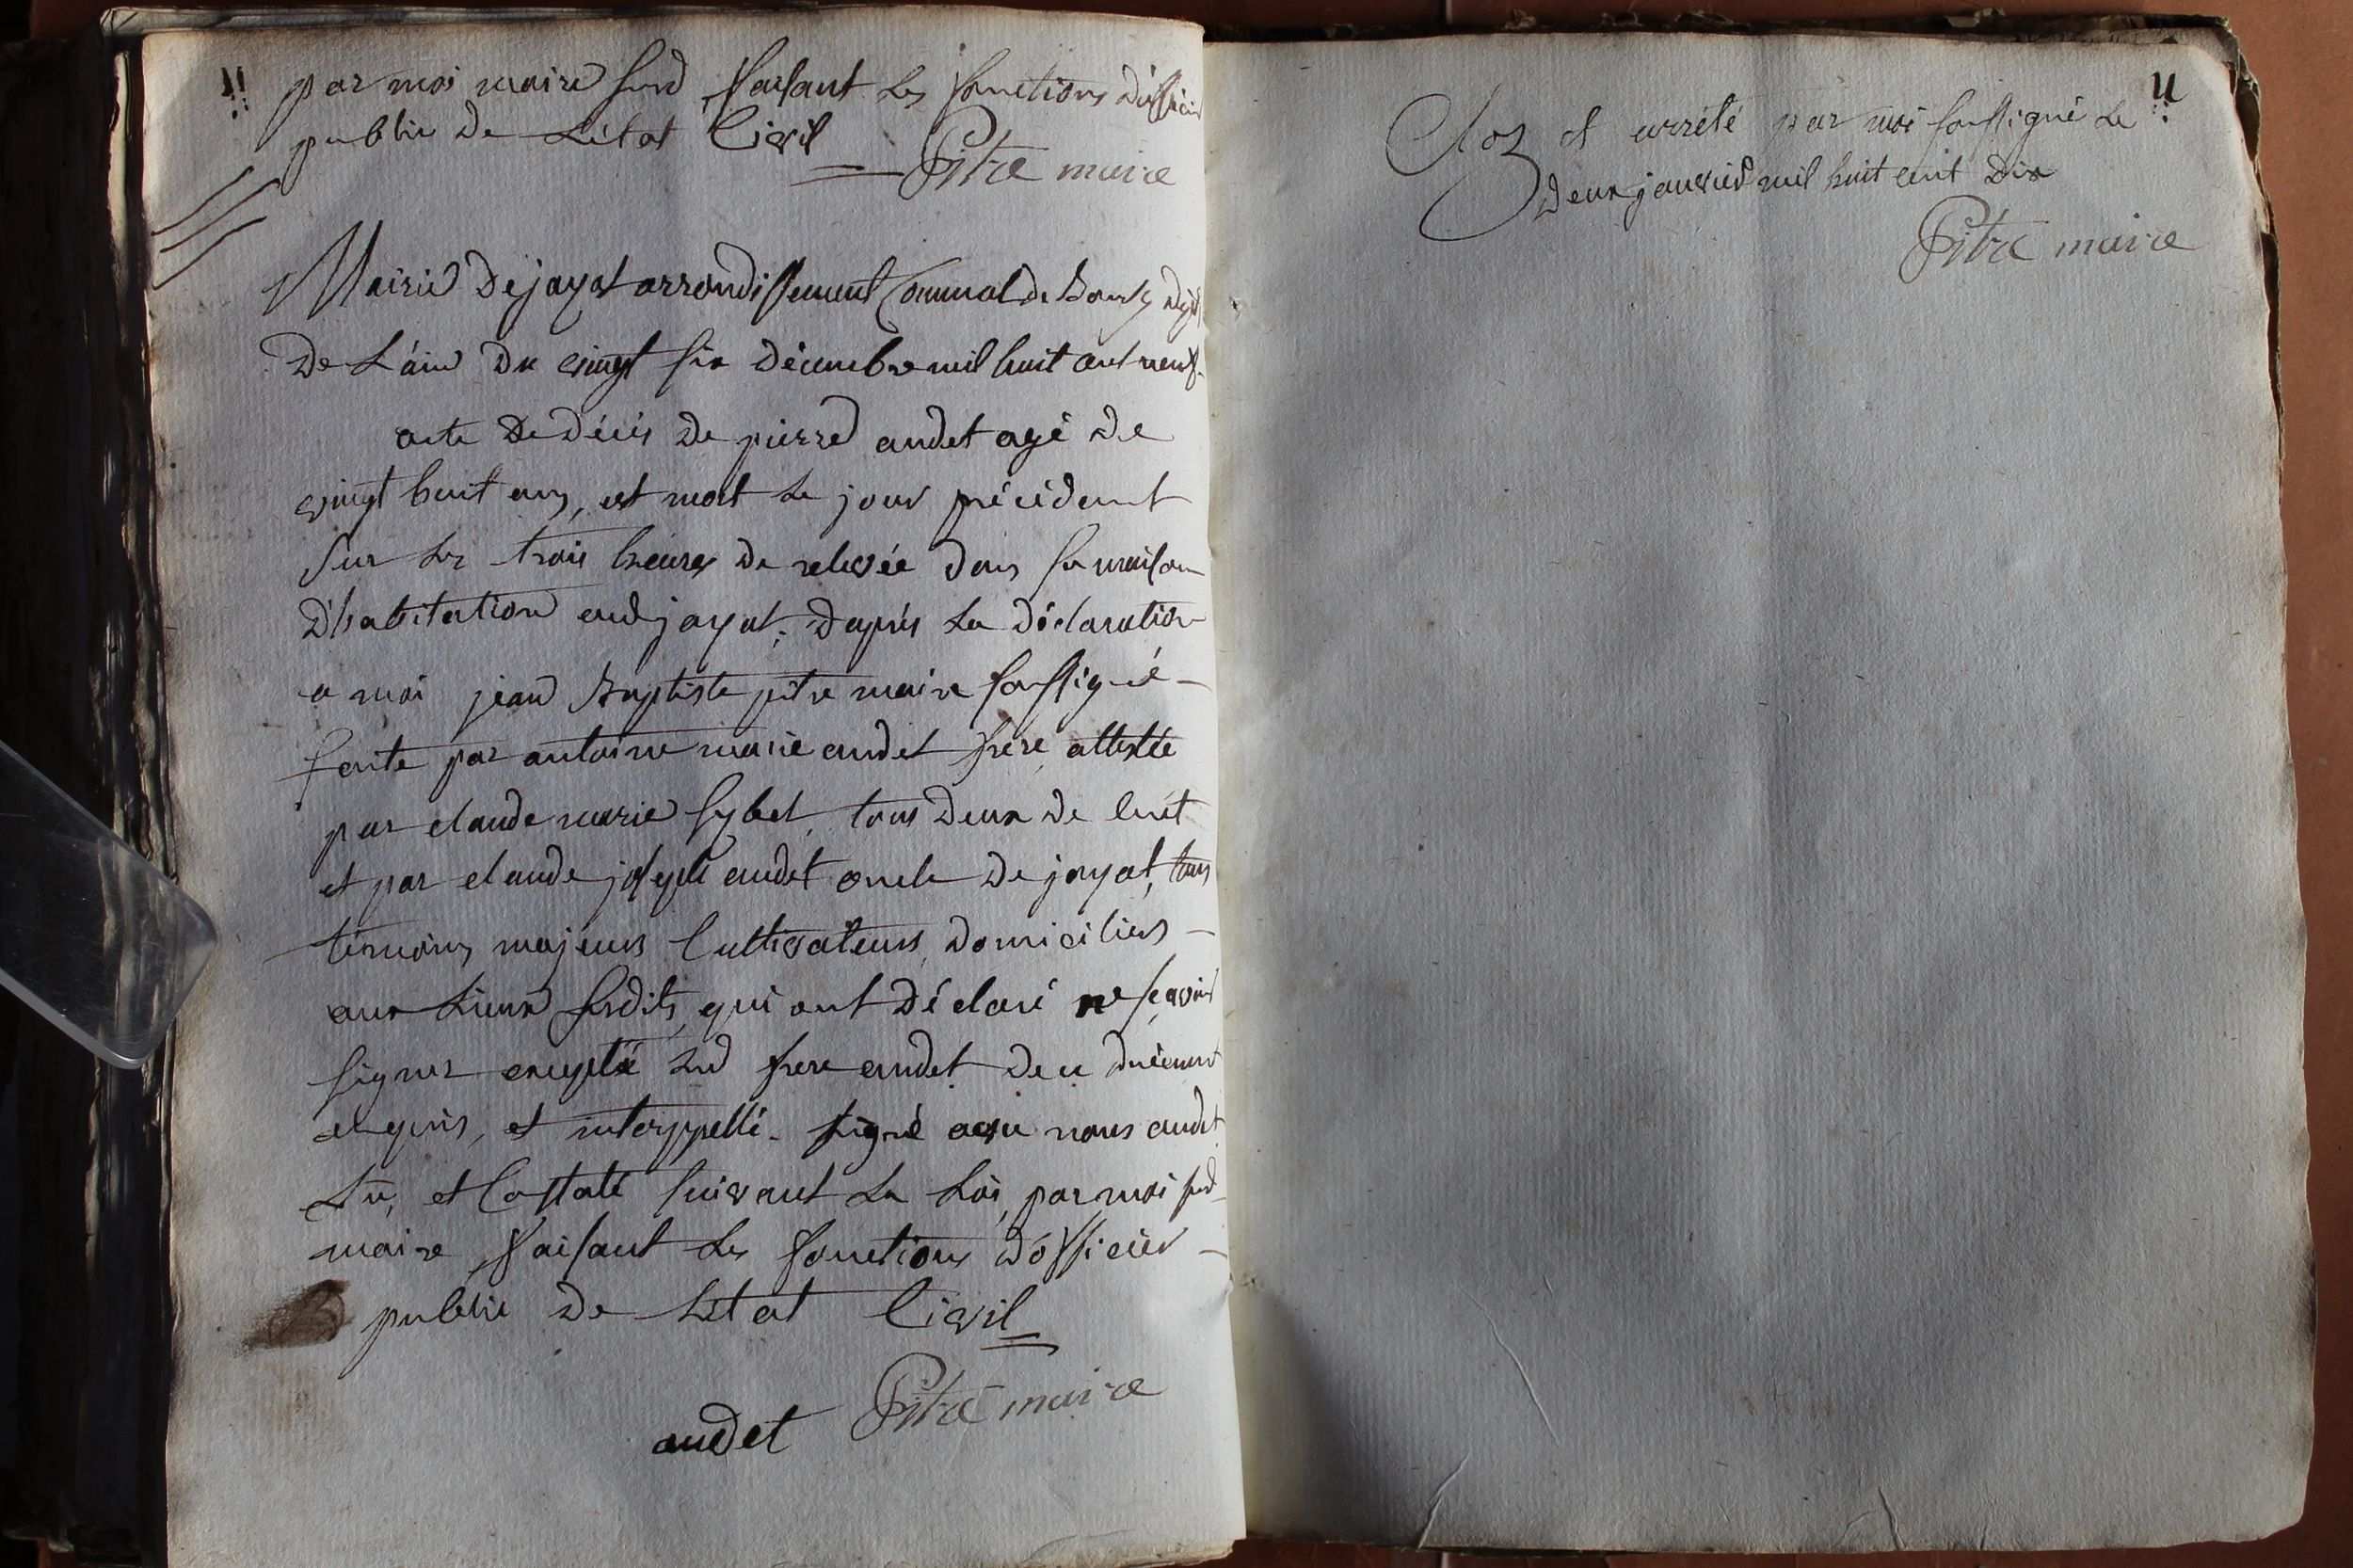 par moi maire susd faisant les fonctions d'officier
public de L'état Civil
Pitre maire
Mairie De jayat arrondissement Communal de Bourg dept
De L'ain Du vingt six Décembre mil huit cent neuf.
acte De Décés De pierre audet agé de
vingt huit ans, est mort le jour précédent
Sur les trois heures De relevée dans sa maison
D'habitation aud jayat; D'aprés La Déclaration
a moi jean Baptiste pitre maire soussigné
faite par antoine marie audet frere, attestée
par claude marie sybet, tous Deux De
et par claude joseph audet oncle De jayat, tous
témoins majeurs Cultivateurs, Domiciliers
aux Lieux susdits, qui ont Déclaré ne sçavoir
signer excepté led frere audet De ce duëment
enquis, et interppellé. signé avec nous audet
Lu, et Costaté suivant La Loi, par moi susd
maire, faisant les fonctions d'officier
public De L'état Civil
audet Pitre maire
11
Clos et arrété par moi soussigné Le
Deux janvier mil huit cent Dix
Pitre maire